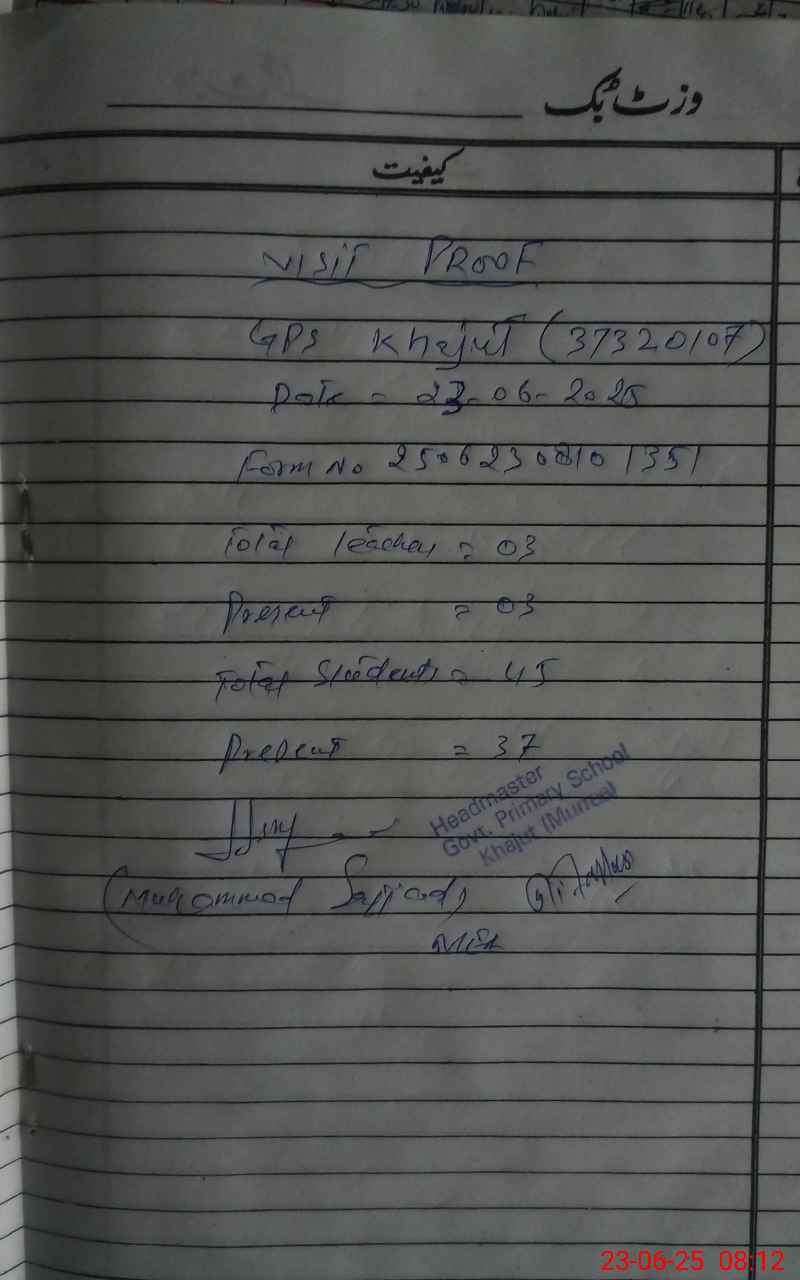 وزٹ بُک
کیفیت
VISIT PROOF
GPS Khajut (37320107)
Date = 23-06-2025
Form No 25062308101351
Total Teacher = 03
Present = 03
Total Students = 45
Present = 37
Headmaster
Govt. Primary School
Khajut (Murree)
(Muhammad Sajjad)
MEA
23-06-25 08:12